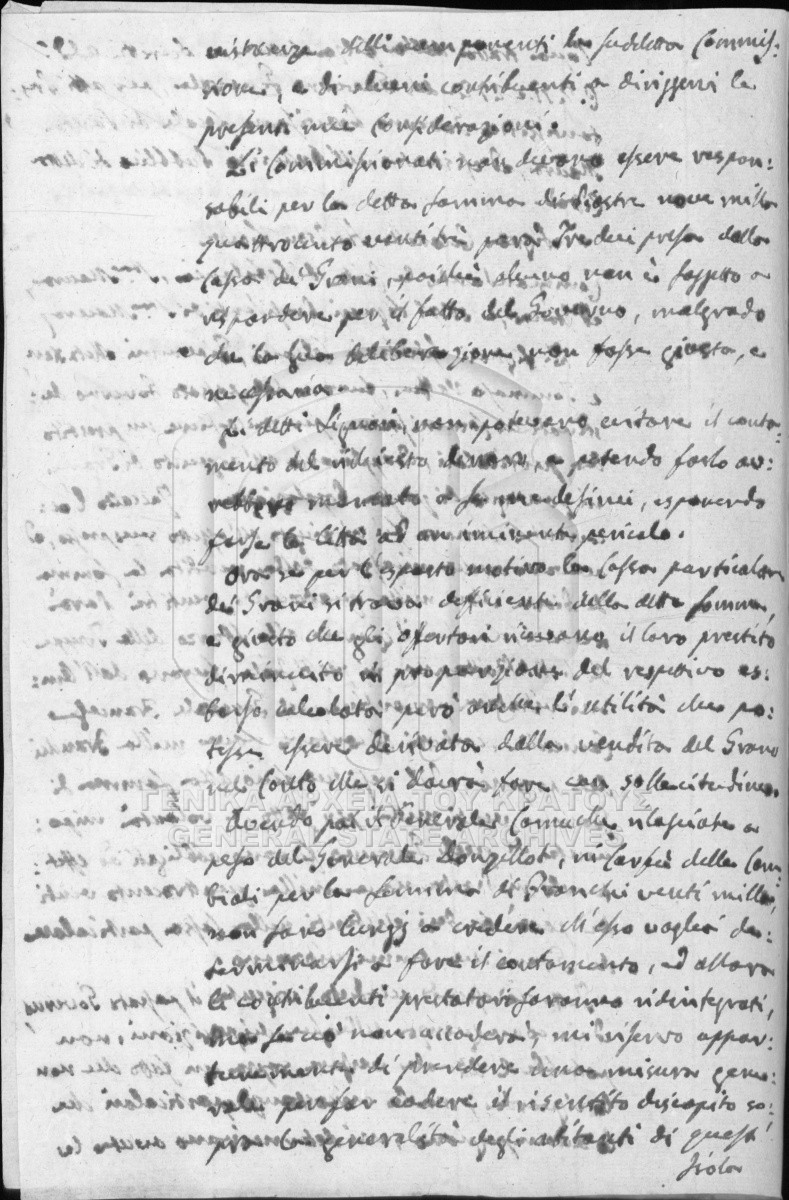 istanze delli componenti la suddetta Commis:
sione, e di alcuni contribuenti a dirigermi le
presenti mie considerazioni.
Li Commissionati non devono essere respon:
sabili per la detta somma di Piastre nove mille
quattrocento venti tre parà Tredici presa dalla
Cassa de' Grani, poiche alcuno non è soggetto a
rispondere per il fatto del Governo, malgrado
che la sua deliberazione non fosse giusta, e
necessaria.
Li detti Signori non potevano evitare il conta:
mento del richiesto denaro, e potendo farlo av:
rebbero mancato a se medesimi, esponendo
forse la Città ad un imminente pericolo.
Ora se per l'esposto motivo la Cassa particolare
de' Grani si trova deficiente della detta somma,
è giusto che gli offertori ricevano il loro prestito
diminuito in proporzione del respetivo es:
borso calcolata però anche l'utilità che po:
tesse essere derivata dalla vendita del Grano
nel Conto che si dovrà fare con sollecitudine.
Avendo poi il Generale Camuchi rilasciate a
peso del Generale Donzellot, in Corfù delle Cam:
biali per la somma di Franchi venti mille,
non sono lungi a credere ch'esso voglia de:
terminarsi a fare il contamento, ed allora
li contribuenti prestatori saranno ridintegrati,
ma se ciò non accaderà, mi riservo oppor:
tunamente di prendere una misura gene:
rale per far cadere il risentito discapito so:
pra la generalità degli abitanti di quest'
Isola
ΓΕΝΙΚΑ ΑΡΧΕΙΑ ΤΟΥ ΚΡΑΤΟΥΣ
GENERAL STATE ARCHIVES